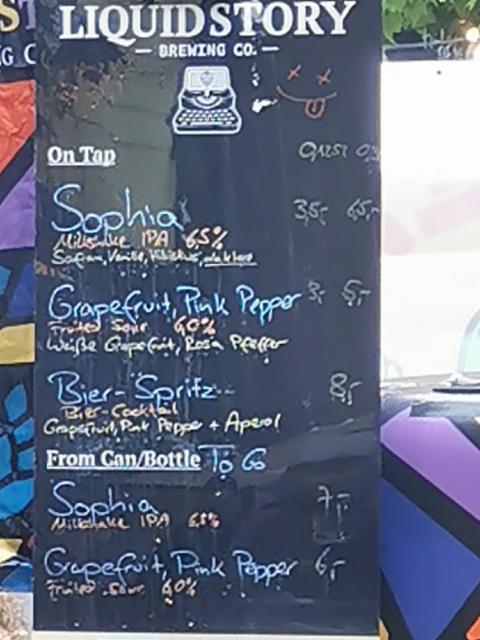 LIQUID STORY
BREWING CO.
On Tap 0,125l
Sophia 3,5,- 6,5,-
Milkshake IPA 6,5%
Safran, Vanille, Hibiskus,
Grapefruit, Pink Pepper 3,- 5,-
Fruited Sour 6,0%
Weiße Grapefruit, Rosa Pfeffer
Bier-Spritz 8,-
Bier-Cocktail
Grapefruit, Pink Pepper + Aperol
From Can/Bottle To Go
Sophia 7,-
Milkshake IPA 6,5%
Grapefruit, Pink Pepper 6,-
Fruited Sour 6,0%